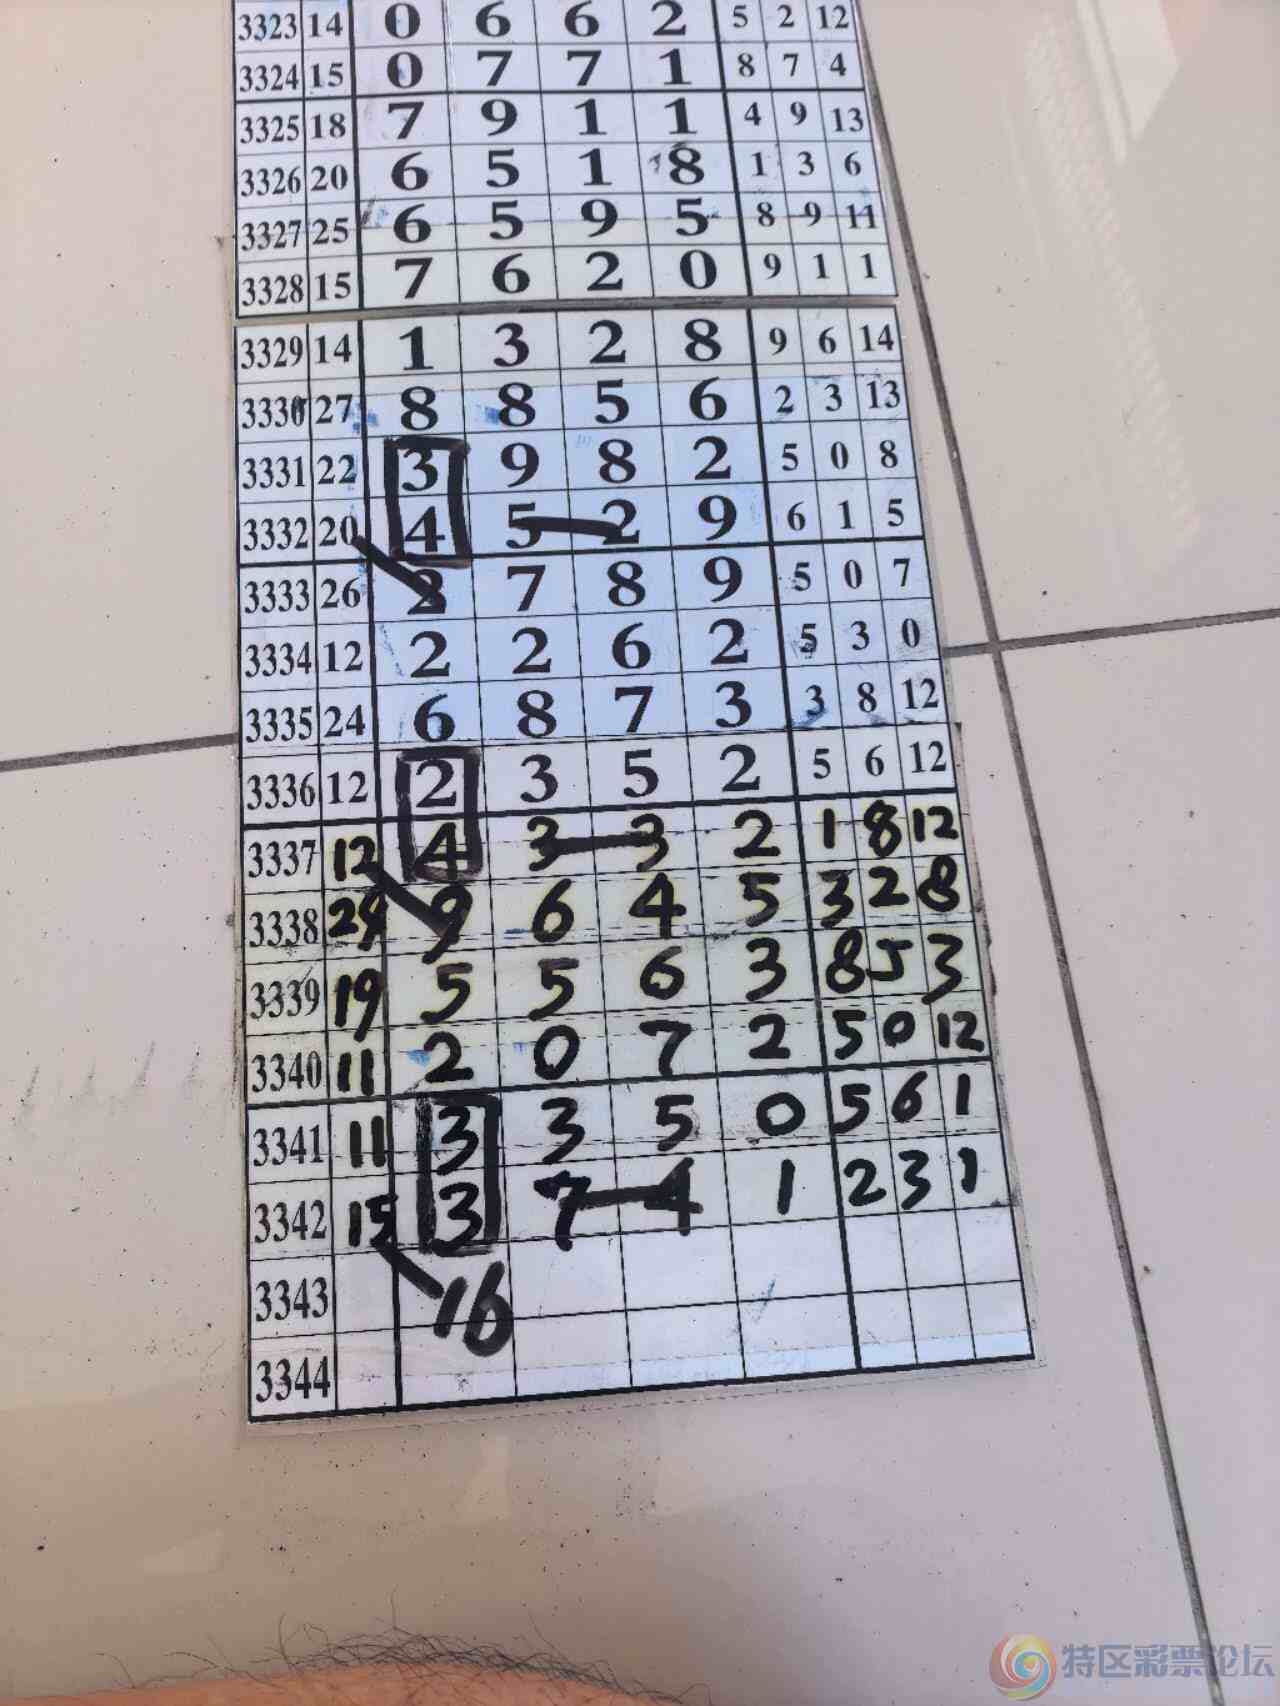 3323 14 0 6 6 2 5 2 12
3324 15 0 7 7 1 8 7 4
3325 18 7 9 1 1 4 9 13
3326 20 6 5 1 8 1 3 6
3327 25 6 5 9 5 8 9 11
3328 15 7 6 2 0 9 1 1
3329 14 1 3 2 8 9 6 14
3330 27 8 8 5 6 2 3 13
3331 22 3 9 8 2 5 0 8
3332 20 4 5 2 9 6 1 5
3333 26 2 7 8 9 5 0 7
3334 12 2 2 6 2 5 3 0
3335 24 6 8 7 3 3 8 12
3336 12 2 3 5 2 5 6 12
3337 12 4 3 3 2 1 8 12
3338 24 9 6 4 5 3 2 8
3339 19 5 5 6 3 8 5 3
3340 11 2 0 7 2 5 0 12
3341 11 3 3 5 0 5 6 1
3342 15 3 7 4 1 2 3 1
3343 16
3344
特区彩票论坛